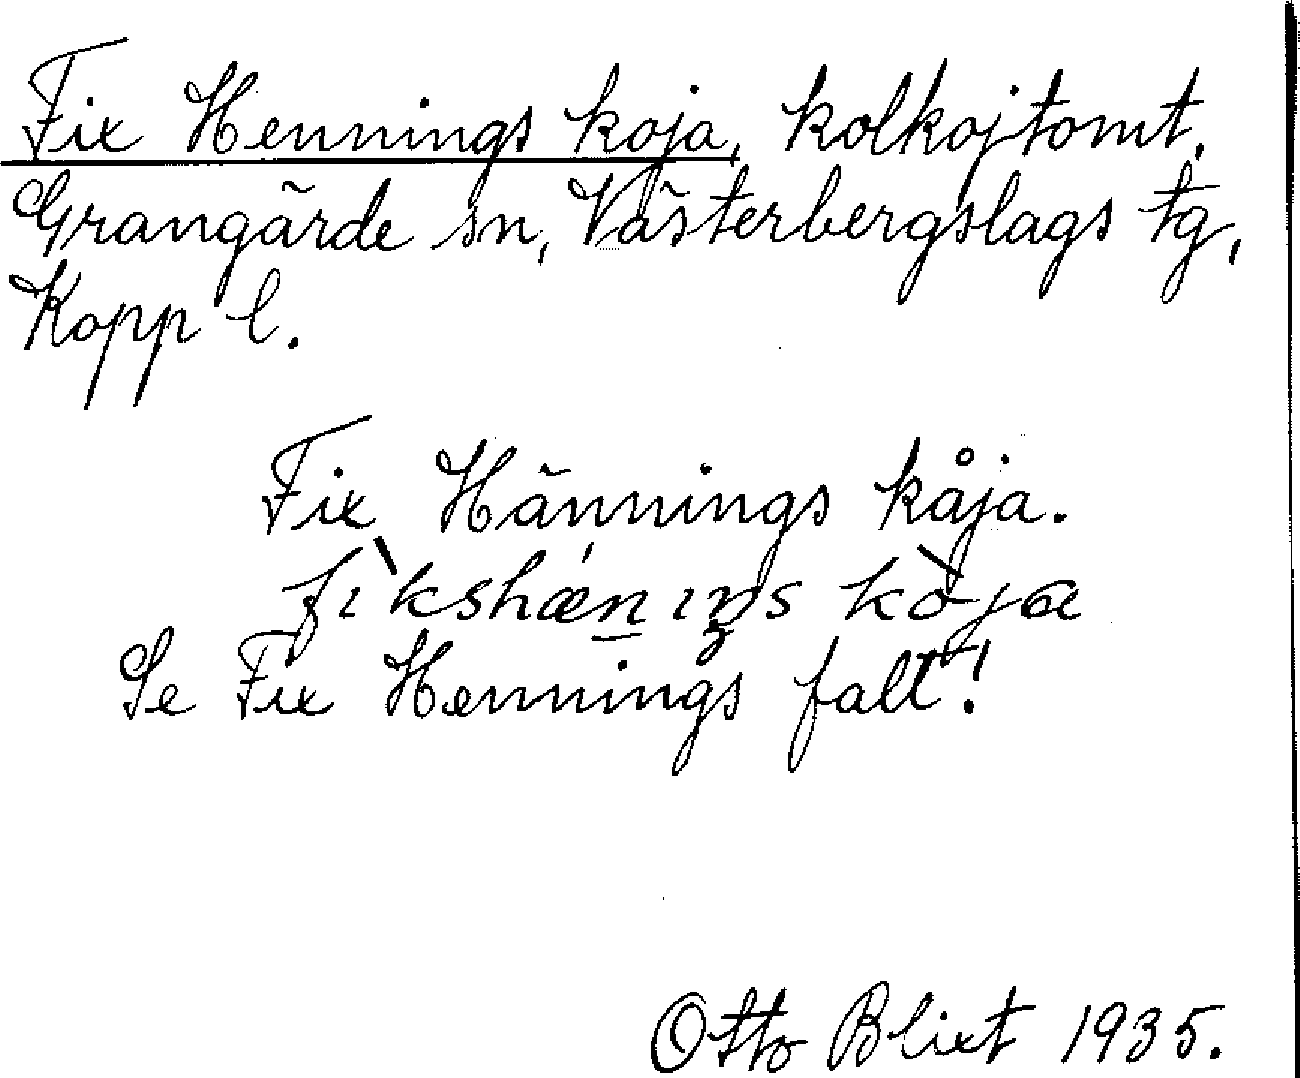 Fix Hennings koja, kolkojtomt.
Grangärde sn, Västerbergslags tg,
Kopp l.
Fix Hännings kåja.
fìkshǽn̲ıŋs kòja
Se Fix Hennings fall!
Otto Blixt 1935.